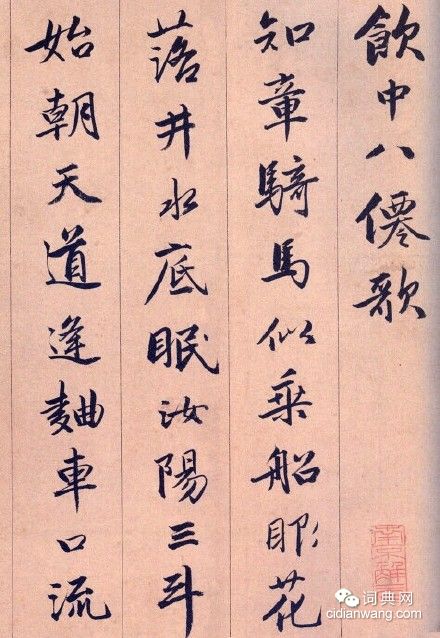 飲中八僊歌
知章騎馬似乘船眼花
落井水底眠汝陽三斗
始朝天道逢麯車口流
词典网
cidianwang.com